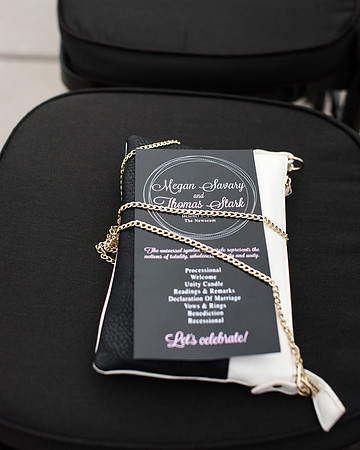 Megan Savary
and
Thomas Stark
The Newseum
The universal symbol represents the
notions of totality, wholeness, and unity.
Processional
Welcome
Unity Candle
Readings & Remarks
Declaration Of Marriage
Vows & Rings
Benediction
Recessional
Let's celebrate!